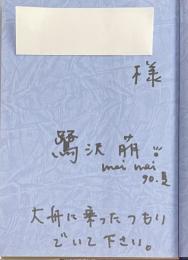 様
鷺沢 萠
mei mei
90.夏
大舟に乗ったつもり
でいて下さい。